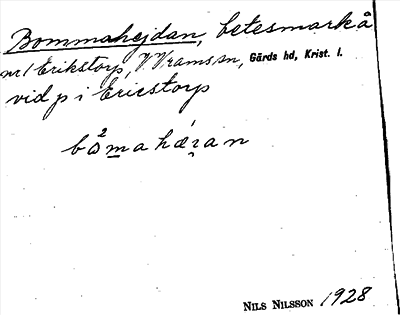 Bommahejdan, betesmark å
nr 1 Erikstorp, V Vrams sn, Gärds hd, Krist. l.
vid p i Ericstorp
NILS NILSSON 1928